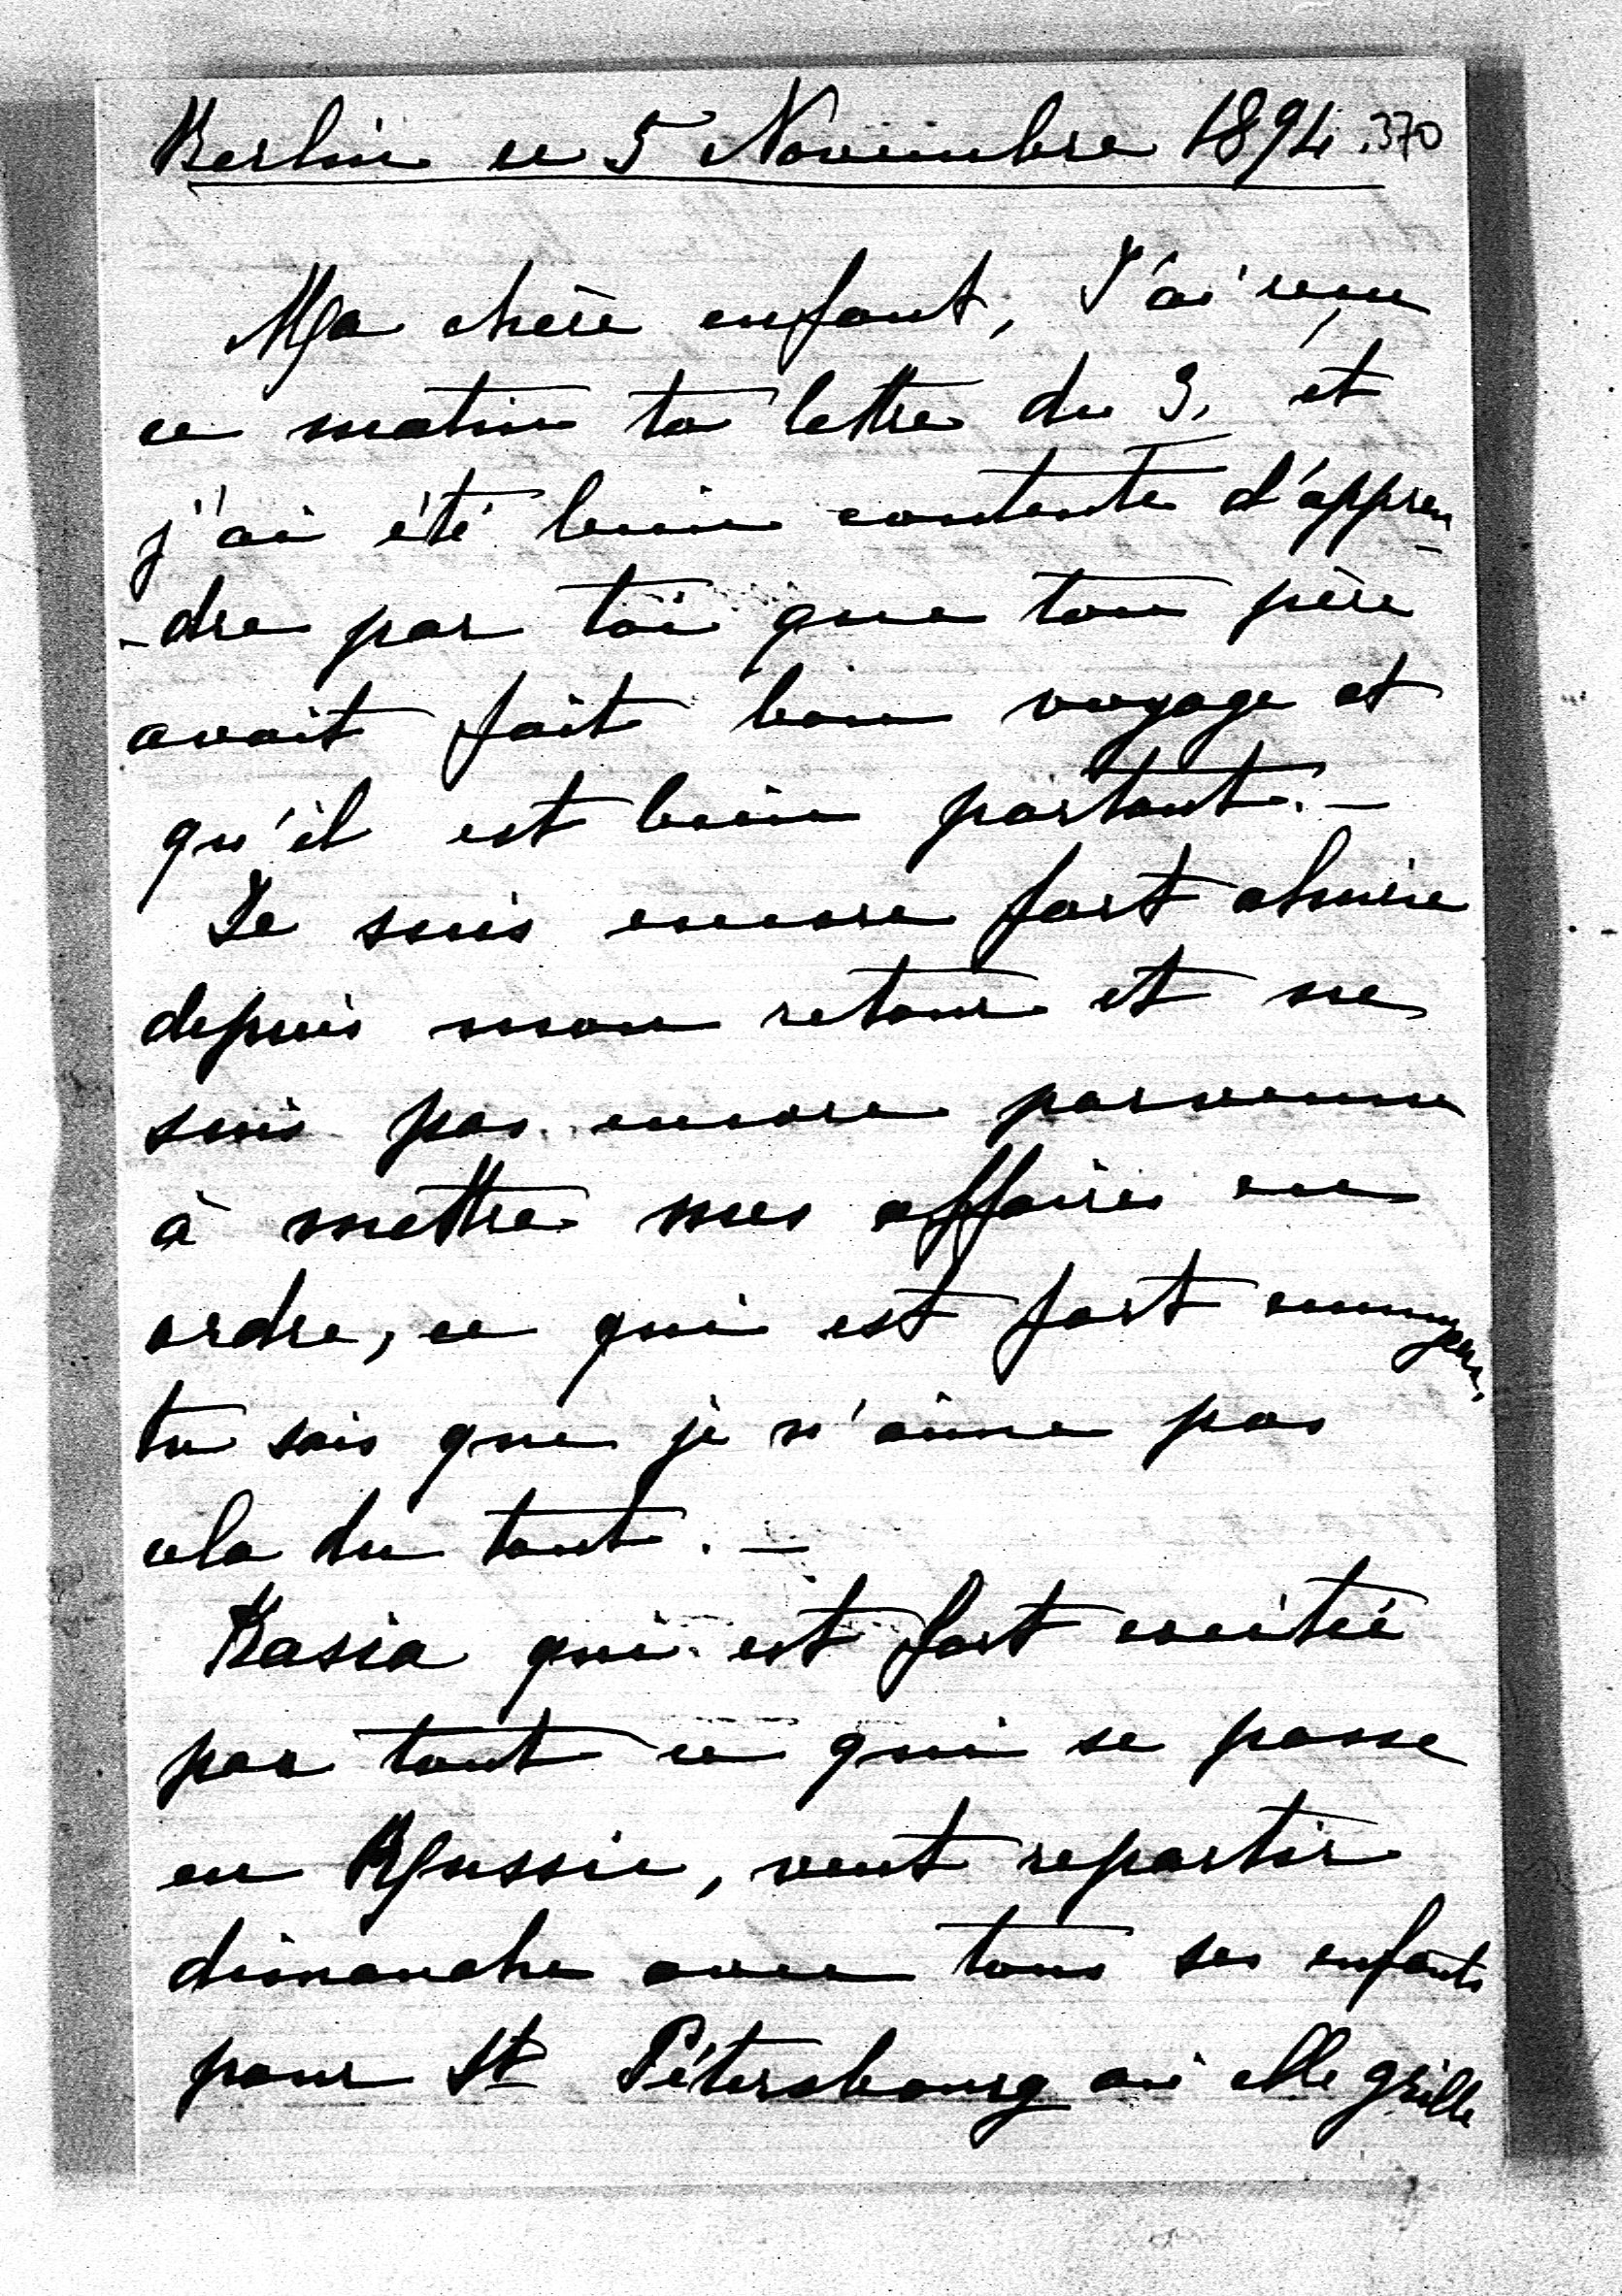 Berlin ce 5 Novembre 1894. 370
Ma chère enfant, J'ai reçu
ce matin ta lettre du 3, et
j'ai été bien contente d'appren
-dre par toi que ton père
avait fait bon voyage et
qu'il est bien portant. –
Je suis encore fort ahurie
depuis mon retour et ne
suis pas encore parvenue
à mettre mes affaires en
ordre, ce qui est fort
tu sais que je n'aime pas
cela du tout. –
Kasia qui est fort excitée
par tout ce qui se passe
en Russie, veut repartir
dimanche avec tous ses enfants
pour St Pétersbourg où elle grille